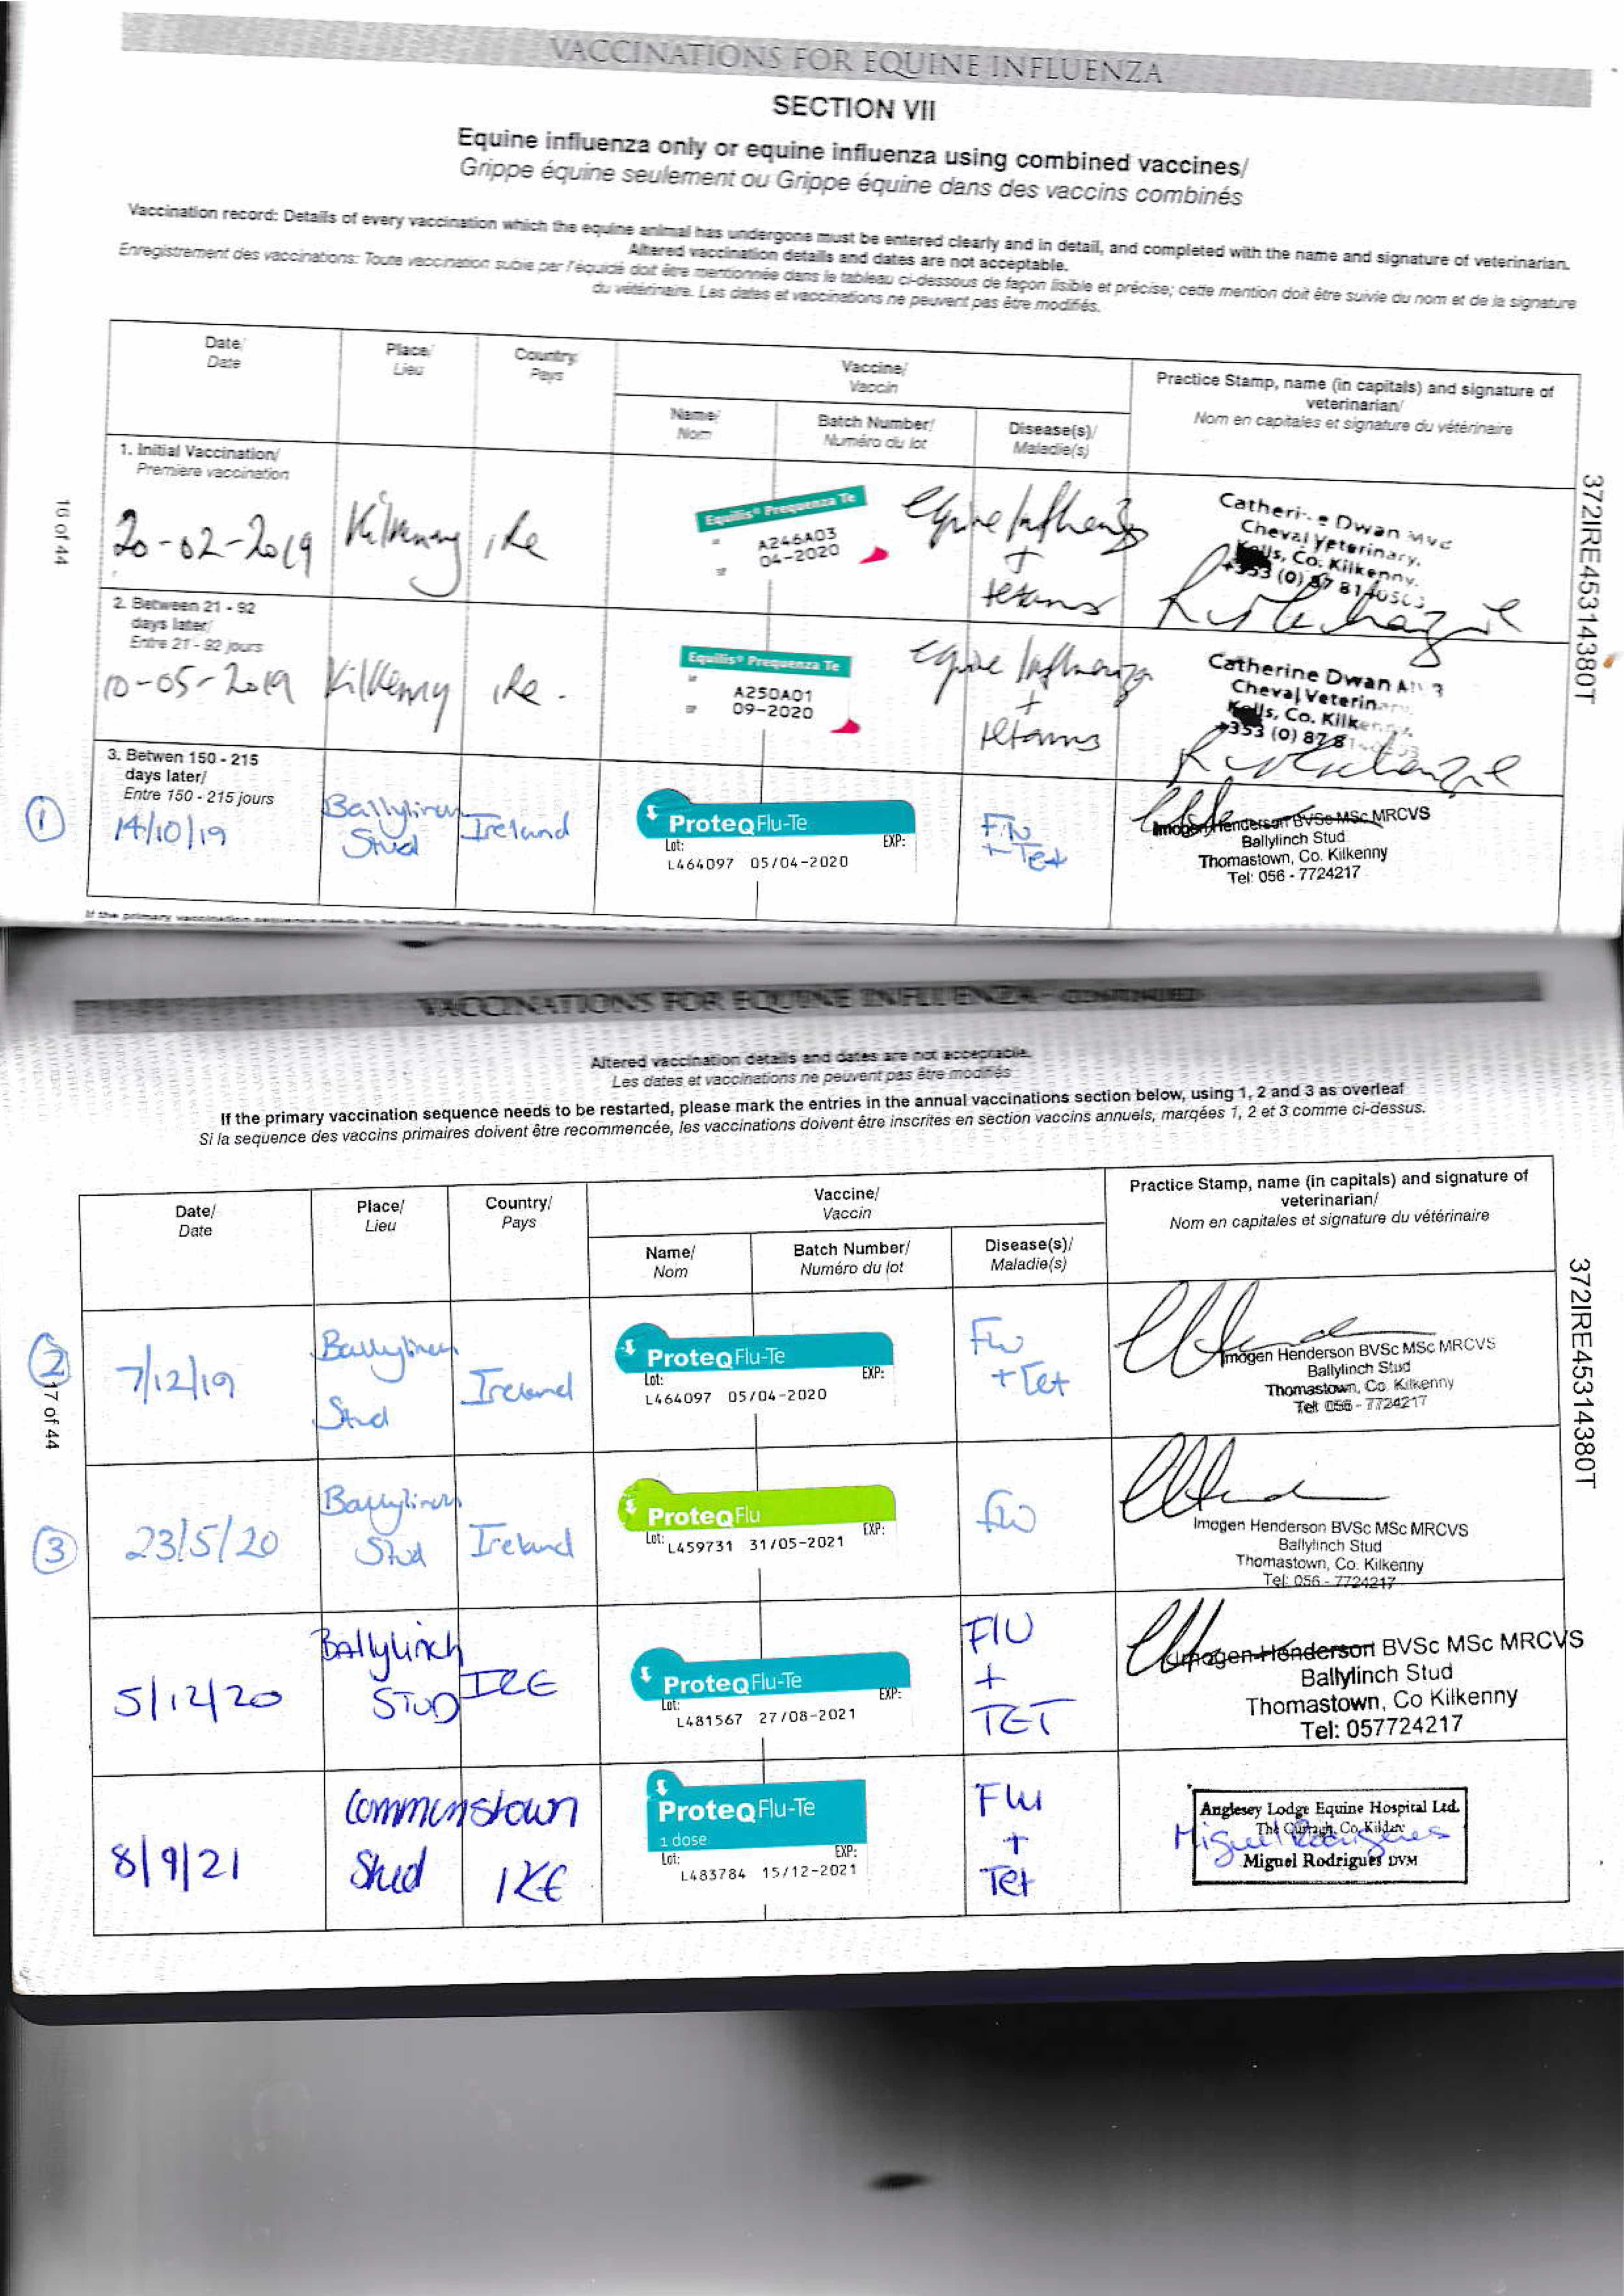 VACCINATIONS FOR EQUINE INFLUENZA
SECTION VII
Equine influenza only or equine influenza using combined vaccines/
Grippe équine seulement ou Grippe équine dans des vaccins combinés
Vaccination record: Details of every vaccination which the equine animal has undergone must be entered clearly and in detail, and completed with the name and signature of veterinarian.
Altered vaccination details and dates are not acceptable.
Enregistrement des vaccinations: Toute vaccination subie par l'équidé doit être mentionnée dans le tableau ci-dessous de façon lisible et précise; cette mention doit être suivie du nom et de la signature
du vétérinaire. Les dates et vaccinations ne peuvent pas être modifiés.
Date/
Date
Place/
Lieu
Country/
Pays
Vaccine/
Vaccin
Name/
Nom
Batch Number/
Numéro du lot
Disease(s)/
Maladie(s)
Practice Stamp, name (in capitals) and signature of
veterinarian/
Nom en capitales et signature du vétérinaire
16 of 44
372IRE45314380T
1. Initial Vaccination/
Premiere vaccination
20-02-2019
Kilkenny
Ire
Equilis® Prequenza Te
A246A03
04-2020
Equine Influenza
+
tetanus
Dwan
Cheval Veterinary,
Kells, Co. Kilkenny.
2. Between 21 - 92
days later/
Entre 21 - 92 jours
10-05-2019
Kilkenny
Ire.
Equilis® Prequenza Te
A250A01
09-2020
Equine Influenza
+
tetanus
Catherine Dwan
Cheval
Kells, Co.
3. Betwen 150 - 215
days later/
Entre 150 - 215 jours
1
14/10/19
Ballylinch
Stud
Ireland
ProteqFlu-Te
Lot:
EXP:
L464097 05/04-2020
Flu
+ Tet
Imogen Henderson BVSc MSc MRCVS
Ballylinch Stud
Thomastown, Co. Kilkenny
Tel: 056 - 7724217
VACCINATIONS FOR EQUINE INFLUENZA - CONTINUED
Altered vaccination details and dates are not acceptable.
Les dates et vaccinations ne peuvent pas être modifiés
If the primary vaccination sequence needs to be restarted, please mark the entries in the annual vaccinations section below, using 1, 2 and 3 as overleaf
Si la sequence des vaccins primaires doivent être recommencée, les vaccinations doivent être inscrites en section vaccins annuels, marqées 1, 2 et 3 comme ci-dessus.
Date/
Date
Place/
Lieu
Country/
Pays
Vaccine/
Vaccin
Name/
Nom
Batch Number/
Numéro du lot
Disease(s)/
Maladie(s)
Practice Stamp, name (in capitals) and signature of
veterinarian/
Nom en capitales et signature du vétérinaire
17 of 44
372IRE45314380T
2
7/12/19
Ballylinch
Stud
Ireland
ProteqFlu-Te
Lot:
EXP:
L464097 05/04-2020
Flu
+ Tet
Imogen Henderson BVSc MSc MRCVS
Ballylinch Stud
Thomastown, Co. Kilkenny
Tel: 056 - 7724217
3
23/5/20
Ballylinch
Stud
Ireland
ProteqFlu
Lot:
EXP:
L459731 31/05-2021
Flu
Imogen Henderson BVSc MSc MRCVS
Ballylinch Stud
Thomastown, Co. Kilkenny
Tel: 056 - 7724217
5/12/20
Ballylinch
STUD
IRE
ProteqFlu-Te
Lot:
EXP:
L481567 27/08-2021
FLU
+
TET
Imogen Henderson BVSc MSc MRCVS
Ballylinch Stud
Thomastown, Co Kilkenny
Tel: 057724217
8/9/21
Comminstown
Stud
IRE
ProteqFlu-Te
1 dose
Lot:
EXP:
L483784 15/12-2021
Flu
+
Tet
Anglesey Lodge Equine Hospital Ltd.
The Curragh, Co. Kildare
Miguel Rodrigues
Miguel Rodrigues DVM